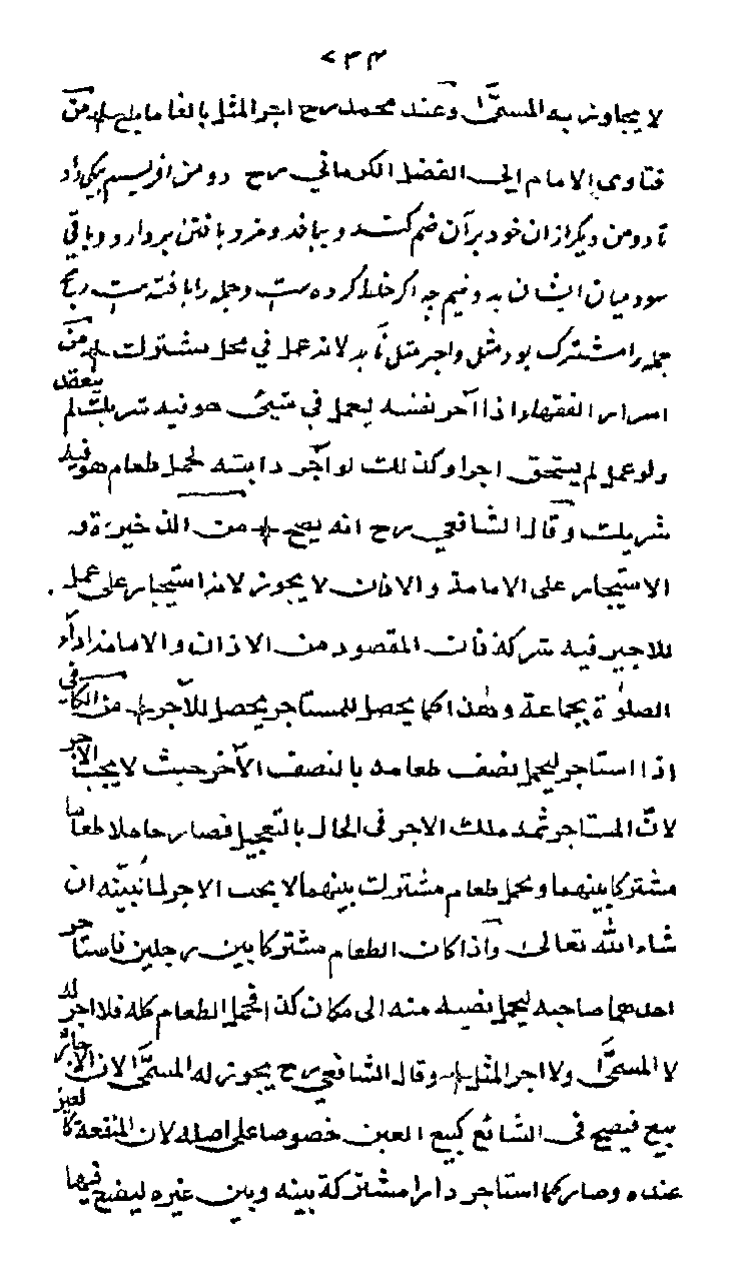 ٢٣٤
لا يجاوز به المسمّى وعند محمد رح اجر المثل بالغا ما بلغ من
فتاوى الامام ابي الفضل الكرماني رح دو من افريسم يكى راد
تا دو من ديكر از ان خود بر آن ضم كند و ببافد و مزد بافتن بردارد و باقي
سود ميان ايشان بدو نيم چه اكر خلط كرده ست و جمله را بافته ست ربح
جمله را مشترك بود مثلى و اجر مثل نايد لانه عمل في محل مشترك من
اسرار الفقهاء اذا آجر نفسه ليعمل في شئ هو فيه شريك لم ينعقد
ولو عمل لم يستحق اجرا وكذلك لو آجر دابته لحمل طعام هو فيه
شريك وقال الشافعي رح انه يصح من الذخيرة و
الاستيجار على الامامة والاذان لا يجوز لانه استيجار على عمل
للاجير فيه شركة فان المقصود من الاذان والامامة اداء
الصلوة بجماعة وهذا كما يحصل للمستاجر يحصل للآجر من الكافي
اذا استاجر ليحمل نصف طعامه بالنصف الآخر حيث لا يجب الاجر
لانّ المستاجر ثمه ملك الاجر فى الحال بالتعجيل فصار حاملا طعاما
مشتركا بينهما وبحمل طعام مشترك بينهما لا يجب الاجر لما نبيّنه ان
شاء الله تعالى واذا كان الطعام مشتركا بين رجلين فاستاجر
احدهما صاحبه ليحمل نصيبه منه الى مكان كذا فحمل الطعام كله فلا اجر له
لا المسمّى ولا اجر المثل وقال الشافعي رح يجوز له المسمّى لان الاجارة
بيع فيصح فى الشائع كبيع العين خصوصا على اصله لان المنفعة كالعين
عنده وصار كما استاجر دارا مشتركة بينه وبين غيره ليضع فيها